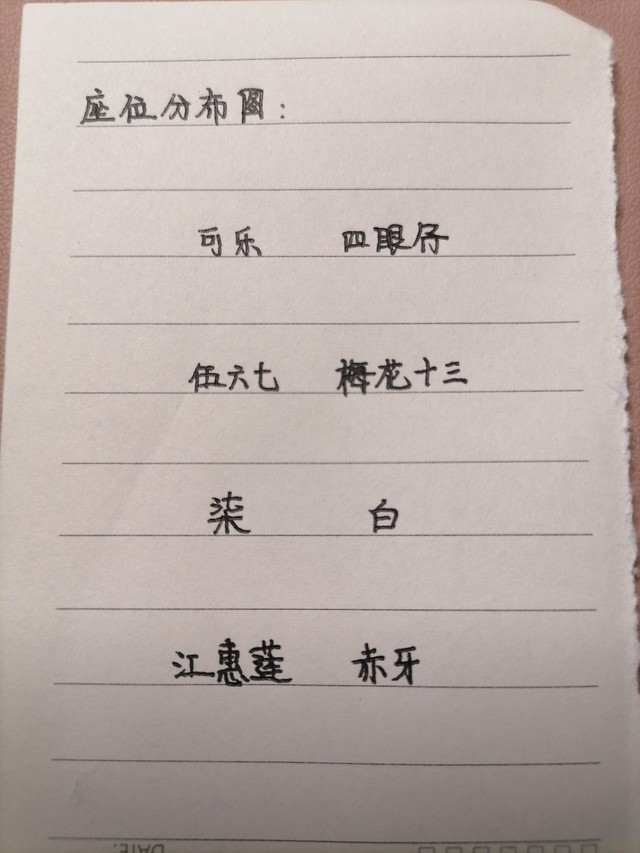 座位分布图：
可乐 四眼仔
伍六七 梅花十三
柒 白
江惠莲 赤牙
DATE: